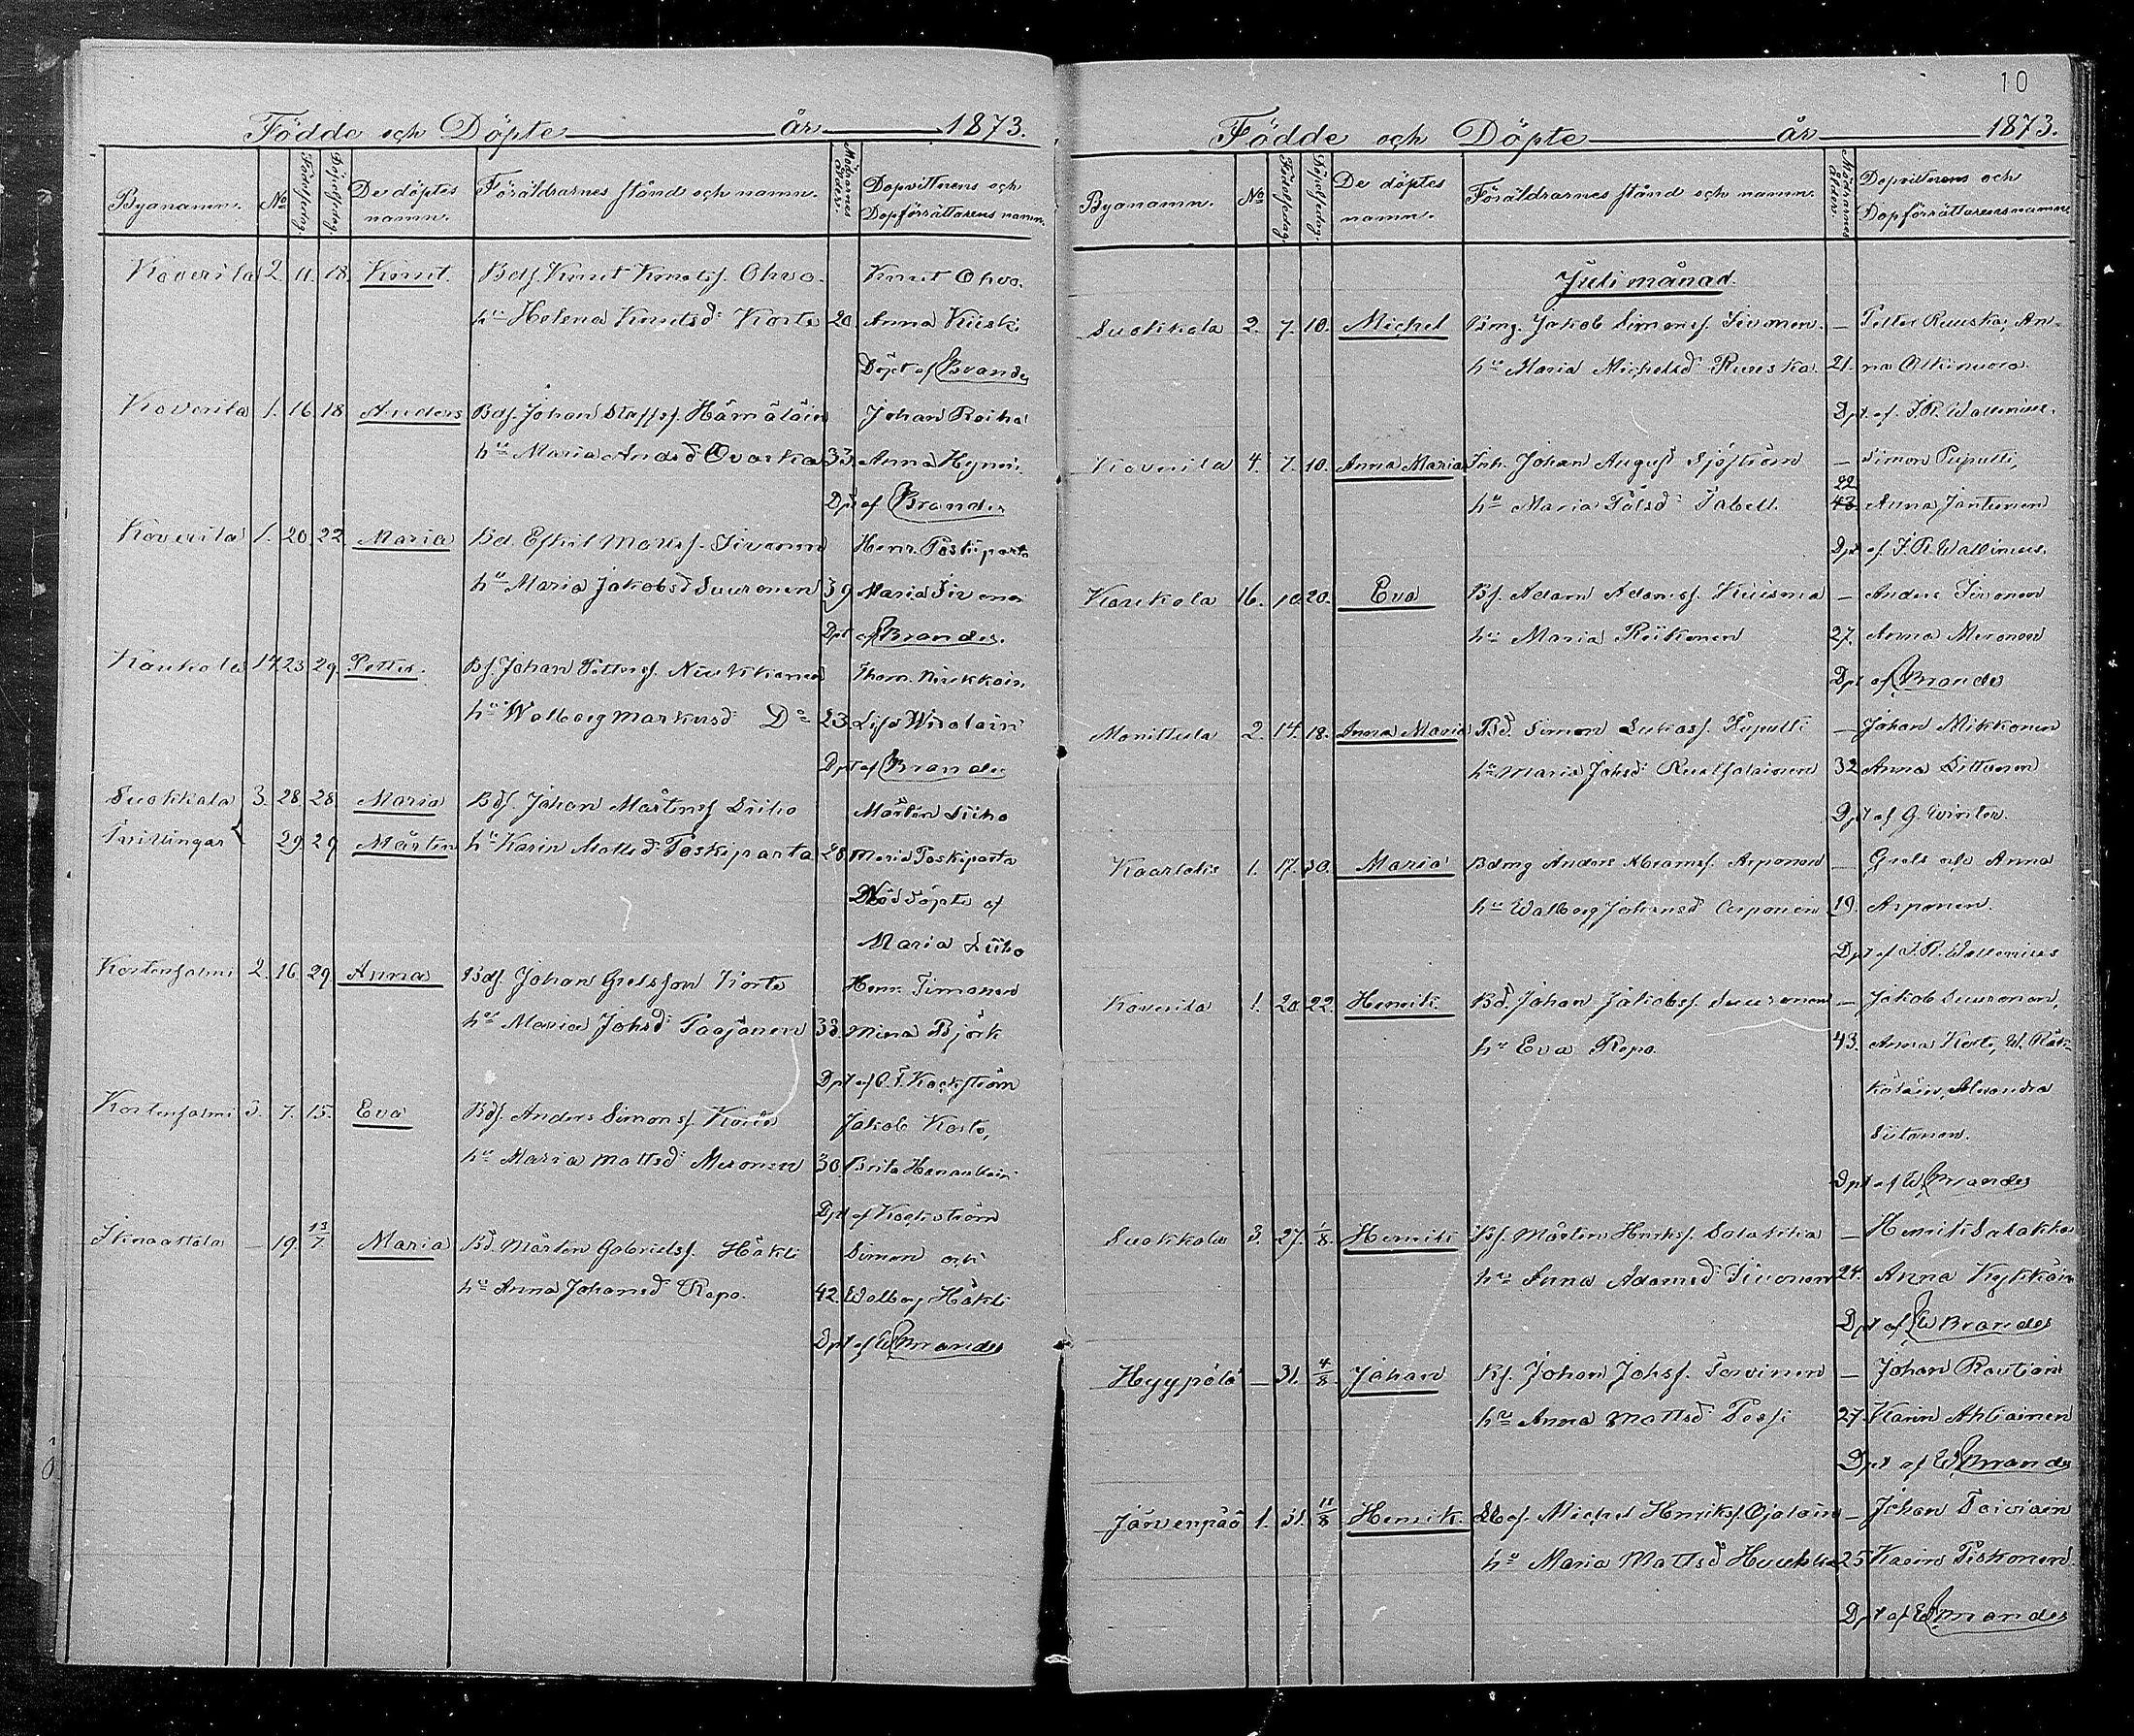 Födde och Döpte år 1873.
Byanamn. № Födelsedag. Döpelsedag. De döptes namn. Föräldrarnes stånd och namn. Mödrarnes ålder. Dopvittnens och Dopförrättarens namn.
Koverila 2. 11. 18. Knut. Bds. Knut Knutss. Ohvo. Knut Ohvo.
hu Helena Knutsd: Korte 20 Anna Kiiski
Döpt af Brander
Koverila 1. 16 18 Anders Bds. Johan Staffss. Hämäläin Johan Roiha
hu Maria Andsd Ovaska 33. Anna Hynni
Dpt af Brander
Koverila 1. 20. 22 Maria Bd. Eskil Matss. Sivonen Henr. Poskiparta
hu Maria Jakobsd Suuronen 39 Maria Sivonen
Dpt af Brander.
Kaukola 17. 23 29. Petter. Bs. Johan Petterss. Niukkanen Thom. Niukkain
hu Walborg Markusd: Do 23. Lisa Wirolain
Dpt af Brander
Suokkala 3. 28. 28. Maria Bds. Johan Mårtenss Liiho Mårten Liiho
Tvillingar { 29 29 Mårten hu Karin Mattsd: Poskiparta 28 Maria Poskiparta
Nöddöpte af
Maria Liiho
Kortensalmi 2. 16. 29 Anna Bds. Johan Grelsson Korte Henr. Timonen
hu Maria Johsd: Paajanen 33. Mina Björk
Dpt af Kockström
Kortensalmi 3. 7. 15. Eva Bds. Anders Simonss. Korte Jakob Korte,
hu Maria Mattsd: Meronen 30. Brita Hannukain
Dpt af Kockström
19. 13/7 Maria Bd. Mårten Gabrielss. Häkli Simon och
hu Anna Johansd Repo. 42. Walborg Häkli
Dpt af W Brander
10
Födde och Döpte år 1873.
Byanamn. № Födelsedag. Döpelsedag. De döptes namn. Föräldrarnes stånd och namn. Mödrarnes ålder. Dopvittnens och Dopförrättarens namn.
Juli månad.
Suokkala 2. 7. 10. Michel Bmg. Jakob Simonss. Sivonen. — Petter Ruuska, An-
hu Maria Michelsd: Ruuska. 21. na Olkinuora.
Dpt. af. J. R. Wallenius.
Koverila 4. 7. 10. Anna Maria Inh. Johan August Sjöström — Simon Pupulli,
22
hu Maria Tabell. 43. Anna Jantunen
Dpt af. J. R. Wallenius.
Kaukola 16. 10. 20. Eva Bs. Adam Adamss. Kuisma — Anders Sivonen
hu Maria Riikonen 27. Anna Meronen
Dpt af Brander
Monittula 2. 14. 18. Anna Maria Bd. Simon Lukass. Pupulli — Johan Mikkonen
hu Maria Johsd: Ruotsalainen 32 Anna Littunen
Dpt af G. Winter.
Kaarlala 1. 17. 20. Maria Bdmg Anders Abramss. Arponen — Grels och Anna
hu Walborg Johansd Arponen 19. Arponen.
Dpt af J. R. Wallenius
Koverila 1. 20. 22. Henrik Bd. Johan Jakobss. Suuronen — Jakob Suuronen,
hu Eva Repo. 43. Anna Korte, W. Räk-
köläin, Alexandra
Siitonen.
Dpt af W Brander
Suokkala 3. 27. 1/8. Henrik Bs. Mårten Henrikss. Salakka — Henrik Salakka
hu Anna Adamsd: Sivonen 24. Anna Kykkäin
Dpt af W Brander
Hyypölä — 31. 4/8. Johan Bs. Johan Johss. Torvinen — Johan Rautiain
hu Anna Mattsd: Possi 27. Karin Ahtiainen
Dpt af W Brander
Järvenpää 1. 31. 11/8 Henrik. Michel Henrikss. Ojalain — Johan Toiviain
hu Maria Mattsd 25 Karin Piskonen.
Dpt af W Brander